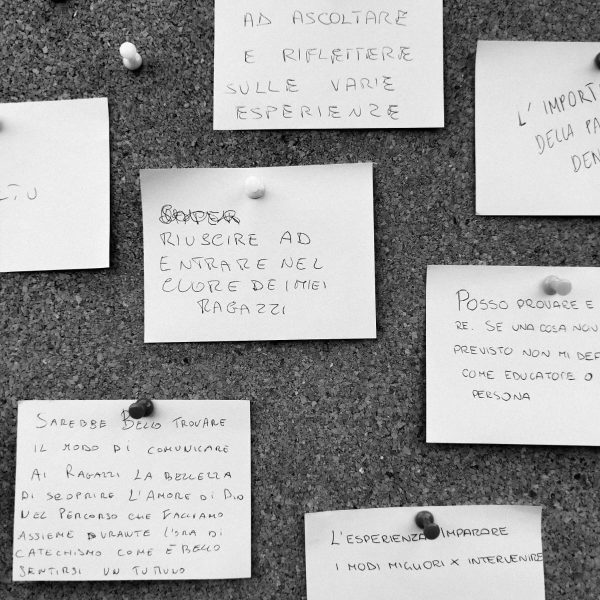 AD ASCOLTARE
E RIFLETTERE
SULLE VARIE
ESPERIENZE
L'IMPORT
DELLA PA
DEN
RIUSCIRE AD
ENTRARE NEL
CUORE DEI MIEI
RAGAZZI
POSSO PROVARE E
RE. SE UNA COSA NON
PREVISTO NON MI DEF
COME EDUCATORE O
PERSONA
SAREBBE BELLO TROVARE
IL MODO DI COMUNICARE
AI RAGAZZI LA BELLEZZA
DI SCOPRIRE L'AMORE DI DIO
NEL PERCORSO CHE FACCIAMO
ASSIEME DURANTE L'ORA DI
CATECHISMO COME È BELLO
SENTIRSI UN TUTUNO
L'ESPERIENZA IMPARARE
I MODI MIGLIORI X INTERVENIRE